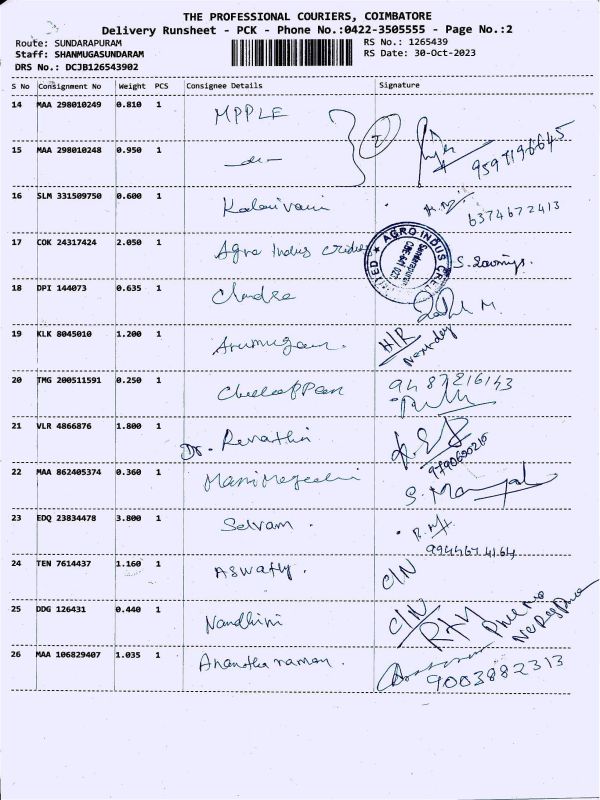 THE PROFESSIONAL COURIERS, COIMBATORE
Delivery Runsheet - PCK - Phone No.:0422-3505555 - Page No.:2
Route: SUNDARAPURAM RS No.: 1265439
Staff: SHANMUGASUNDARAM RS Date: 30-Oct-2023
DRS No.: DCJB126543902
S No Consignment No Weight PCS Consignee Details Signature
14 MAA 298010249 0.810 1 MPPLE
15 MAA 298010248 0.950 1 -do- 9597196645
16 SLM 331509750 0.600 1 Kalaivani 6374672413
17 COK 24317424 2.050 1 Agro Indus credit AGRO INDUS CREDIT LIMITED
18 DPI 144073 0.635 1 Chandra
19 KLK 8045010 1.200 1 Arumugam. H/R Next day
20 TMG 200511591 0.250 1 Chellappan 9487216143
21 VLR 4866876 1.800 1 Dr. Revathi 9790600215
22 MAA 862405374 0.360 1 Manimegalai
23 EDQ 23834478 3.800 1 Selvam. 9944674164
24 TEN 7614437 1.160 1 Aswathy. C/N
25 DDG 126431 0.440 1 Nandhini C/N
26 MAA 106829407 1.035 1 Anantha raman. 9003882313